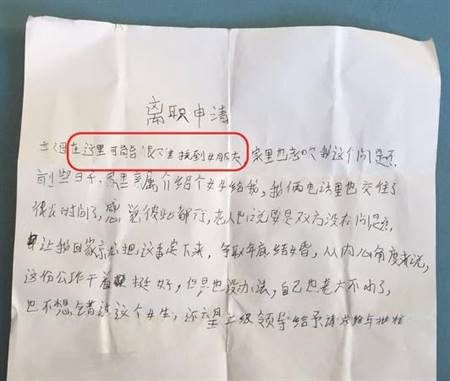 离职申请
在这里可能没法找到女朋友 家里也考虑我这个问题
前些日子，家里亲属介绍个女生给我，我俩电话里也交往了
很长时间了，感觉彼此都行，老人也说要是双方没有问题
让我回家去把这事定下来，争取年底结婚，从内心角度来说，
这份工作干着挺好，但是也没办法，自己也老大不小了，
也不想错过这个女生，还希望上级领导给予 与批准